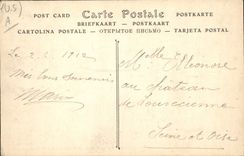 (U.S)
A
POST CARD Carte Postale POSTKARTE
BRIEFKAART — POSTKAART
CARTOLINA POSTALE — ОТКРЫТОЕ ПИСЬМО — TARJETA POSTAL
Le 2. 1912
Mes bons souvenirs
Marie
Melle Eléonore
au château
de
Seine et Oise